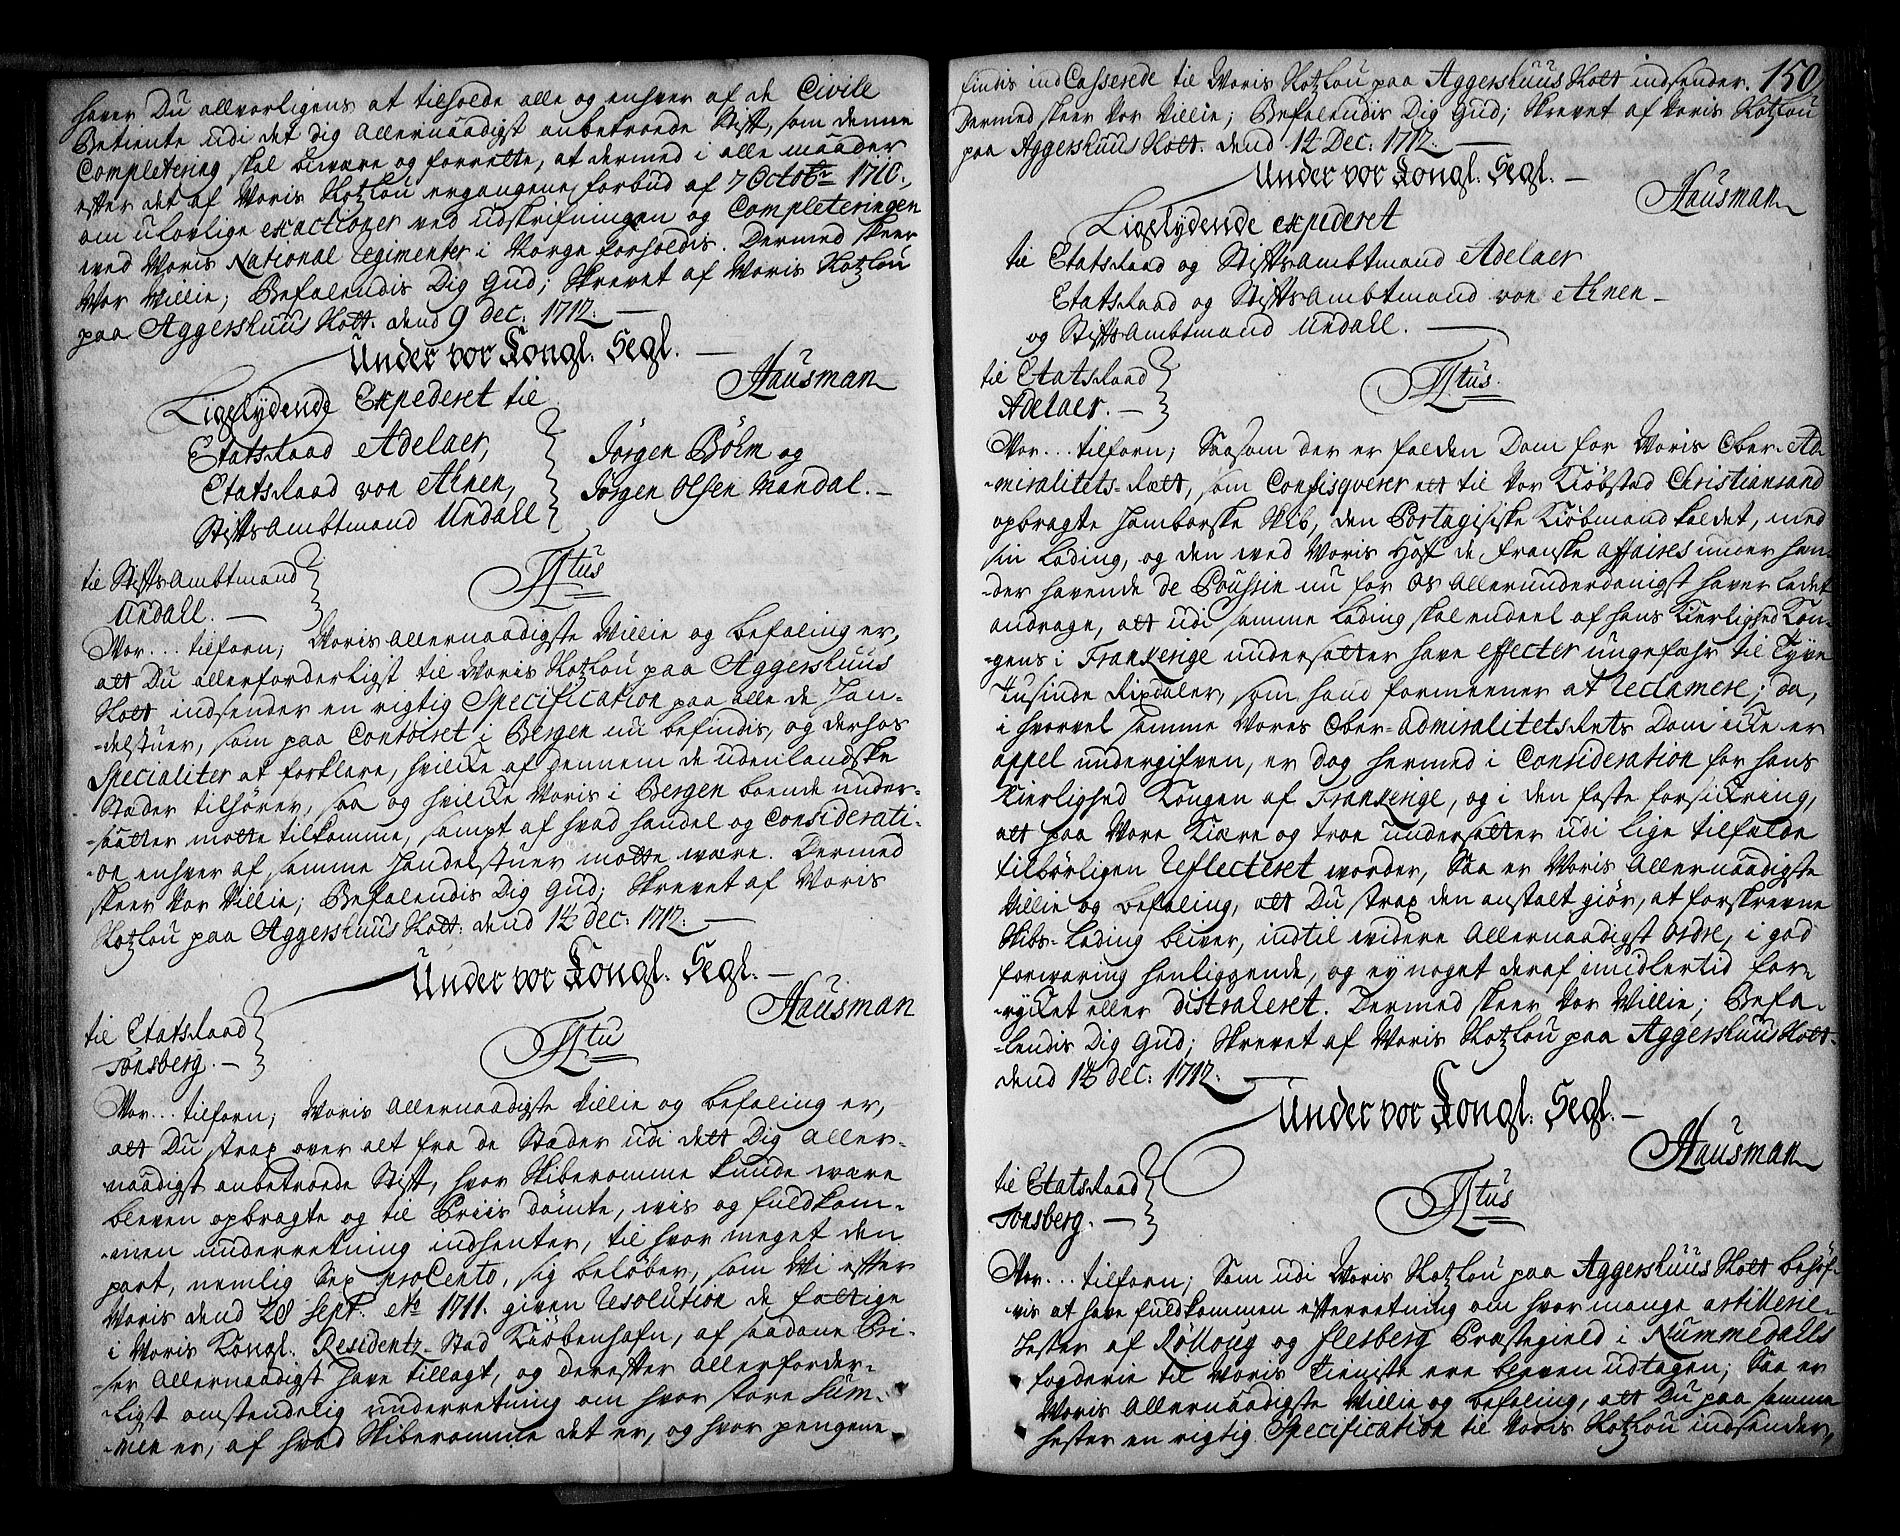 haver Du allvorligens at tilholde alle og enhver af de Civile
Betiente udi det dig allernaadigst anbetroede Stift, som denne
Completering skal bivære og forrette, at dermed i alle maader
efter det af Voris Slotzlou ergangene forbud af 7 Octobr 1710,
om ulovlige exactioner ved udskrifningen og Completeringen
ved Voris National Regimenter i Norge forholdis. Dermed skeer
Vor Villie; Befalendis Dig Gud; Skrevet af Voris Slotzlou
paa Aggershuus Slott. dend 9 dec: 1712. —
Under vor Kongl. Segl. —
Hausman
Ligelydende Expederet til
Etatsraad Adelaer,
Etatsraad von Ahnen,
StiftsAmbtmand Undall
Jørgen Bøhm og
Jørgen Olsen Mandal. —
til StiftsAmbtmand
Undall. —
Titus
Vor... tilforn; Voris allernaadigste Villie og befaling er,
att Du allerforderligst til Voris Slotzlou paa Aggershuus
Slott indsender en rigtig Specification paa alle de Han-
-delstuer, som paa Contoiret i Bergen nu befindis, og derhos
Specialiter at forklare, hvilke af gennem de udenlandske
Stæder tilhører, saa og hvilke Voris i Bergen boende under-
-saatter motte tilkomme, sampt af hvad handel og Considerati-
-on enhver af samme Handelstuer motte være. Dermed
skeer Vor Villie; Befalendis Dig Gud; Skrevet af Voris
Slotzlou paa Aggershuus Slott. dend 14 dec: 1712. —
Under vor Kongl. Segl. —
Hausman
til Etatsraad
Tonsberg. —
Titu
Vor... tilforn; Voris allernaadigste Villie og befaling er,
att Du strax over alt fra de Stæder udi dett Dig aller-
naadigst anbetroede Stift, hvor Skiberomme kunde være
bleven opbragte og til Priis dømte, vis og fuldkom-
-men underretning indhenter, til hvor meget den
part, nemlig Sex proCento, sig beløber, som Vi efter
Voris dend 28 Sept. Ao 1711. given Resolution de fattige
i Voris Kongl. Residentz-Stad Kiøbenhafn, af saadane Pri-
-ser allernaadigst have tillagt, og derefter allerforder-
-ligst omstendelig underretning om hvor store Sum-
-men er, af hvad Skiberomme det er, og hvor pengene
150
findis indCasserede til Voris Slotzlou paa Aggershuus Slott indsender.
Dermed skeer Vor Villie; Befalendis Dig Gud; Skrevet af Voris Slotzlou
paa Aggershuus Slott. dend 14 Dec: 1712. —
Under vor Kongl. Segl. —
Hausman
Ligelydende expederet
til Etatsraad og StiftsAmbtmand Adelaer
Etatsraad og StiftsAmbtmand von Ahnen —
og StiftsAmbtmand Undall. —
til Etatsraad
Adelaer. —
Titus.
Vor... tilforn; Saasom der er falden Dom for Voris Ober-Ad-
-miralitets-Rætt, som Confisquerer ett til Vor Kiøbstad Christiansand
opbragte Hamborske Skib, den Portagisiske Kiøbmand kaldet, med
sin Lading, og den ved Voris Hof de franske affaires under hæn-
-der havende de Poussin nu for Os allerunderdanigst haver ladet
andrage, att udi samme Lading skal endeel af hans Kierlighed Kon-
-gens i Frankerige undersatter have effecter ungefahr til Tyve
Tusinde Rixdaler, som hand formeener at Reclamere; da,
i hvorvel samme Vores Ober-admiralitets Rets Dom icke er
appel undergifven, er dog hermed i Consideration for hans
Kierlighed Kongen af Frankerige, og i den faste forsickring,
att paa Vore Kiære og troe undersatter udi lige tilfælde
tilbørligen Reflecteret vorder, Saa er Voris Allernaadigste
Villie og befaling, att Du strax den anstalt giør, at forskrevne
Skibs-Lading bliver, indtil videre allernaadigst ordre, i god
forvaring henliggende, og ey noget deraf imidlertid for-
-rycket eller distraheret. Dermed skeer Vor Villie; Befa-
-lendis Dig Gud; Skrevet af Voris Slotzlou paa Aggershuus Slott.
dend 14 dec: 1712. —
Under vor Kongl. Segl. —
Hausman
til Etatsraad
Tonsberg. —
Titus
Vor... tilforn; Som udi Voris Slotzlou paa Aggershuus Slott behøf-
vis at have fuldkommen efterretning om hvor mange artillerie-
Hester af Rolloug og Flesberg Præstegield i Nummedahls
fogderie til Voris Tieniste ere bleven udtagen; Saa er
Voris Allernaadigste Villie og befaling, att Du paa samme
hester en rigtig Specification til Voris Slotzlou indsender,